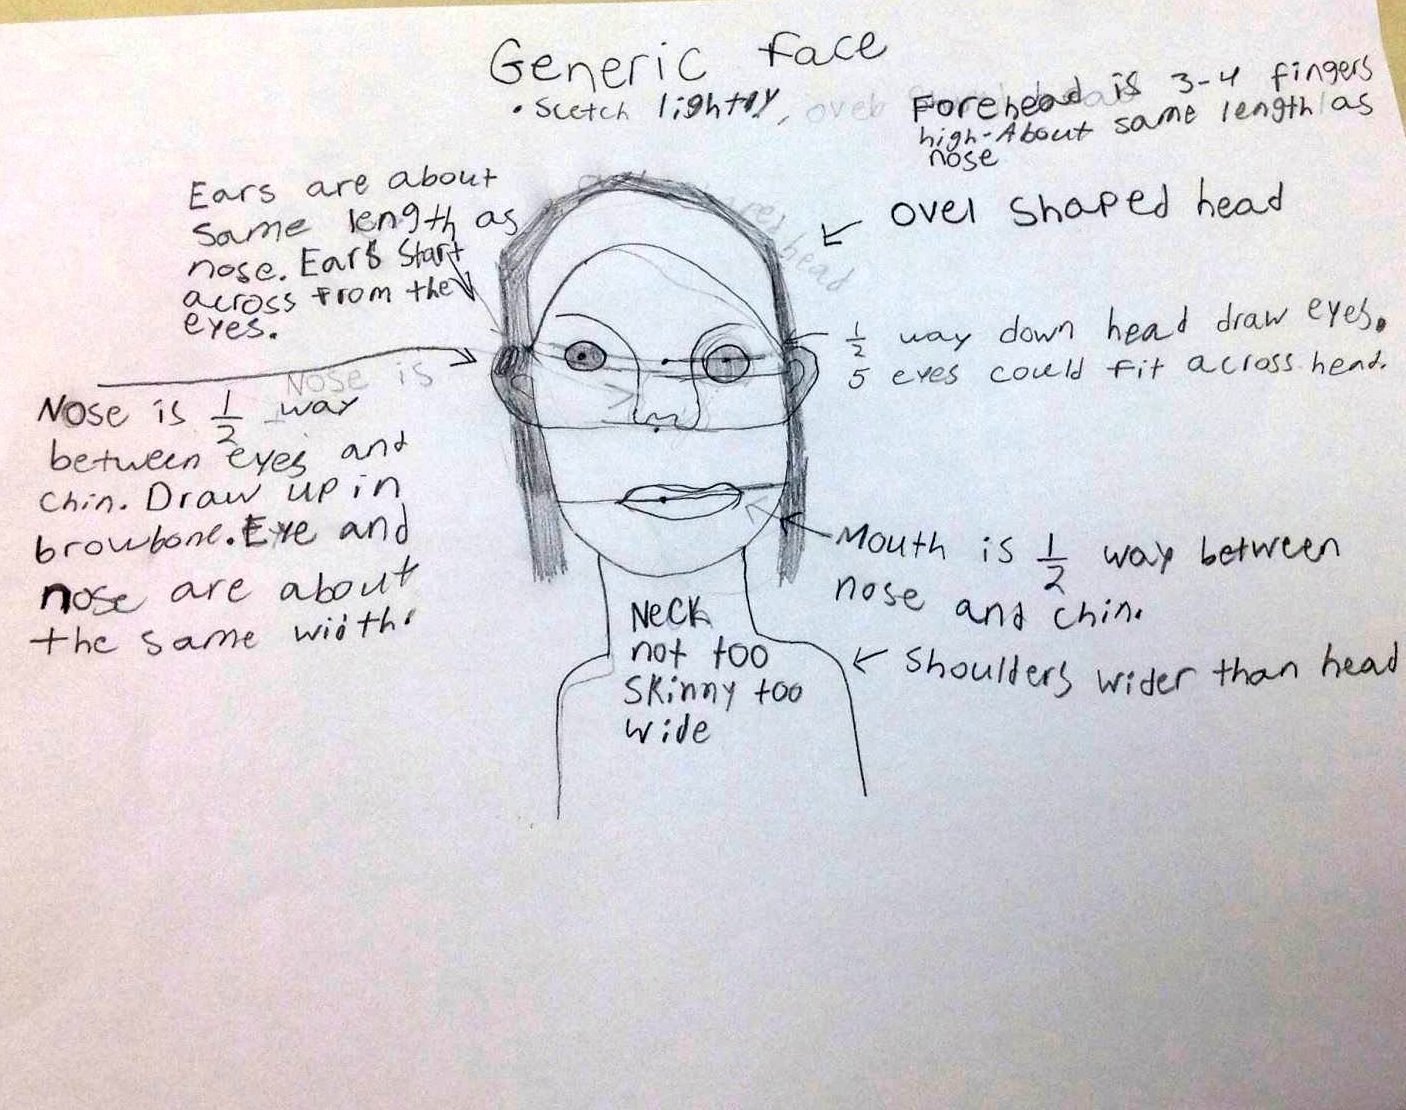 Generic face
• Scetch lightly,
Forehead is 3-4 fingers
high-About same length as
nose
Ears are about
same length as
nose. Ears start
across from the
eyes.
← ovel shaped head
1/2 way down head draw eyes.
5 eyes could fit across head.
Nose is
Nose is 1/2 way
between eyes and
chin. Draw up in
browbone. Eye and
nose are about
the same width.
Mouth is 1/2 way between
nose and chin.
Neck
not too
skinny too
wide
← Shoulders wider than head